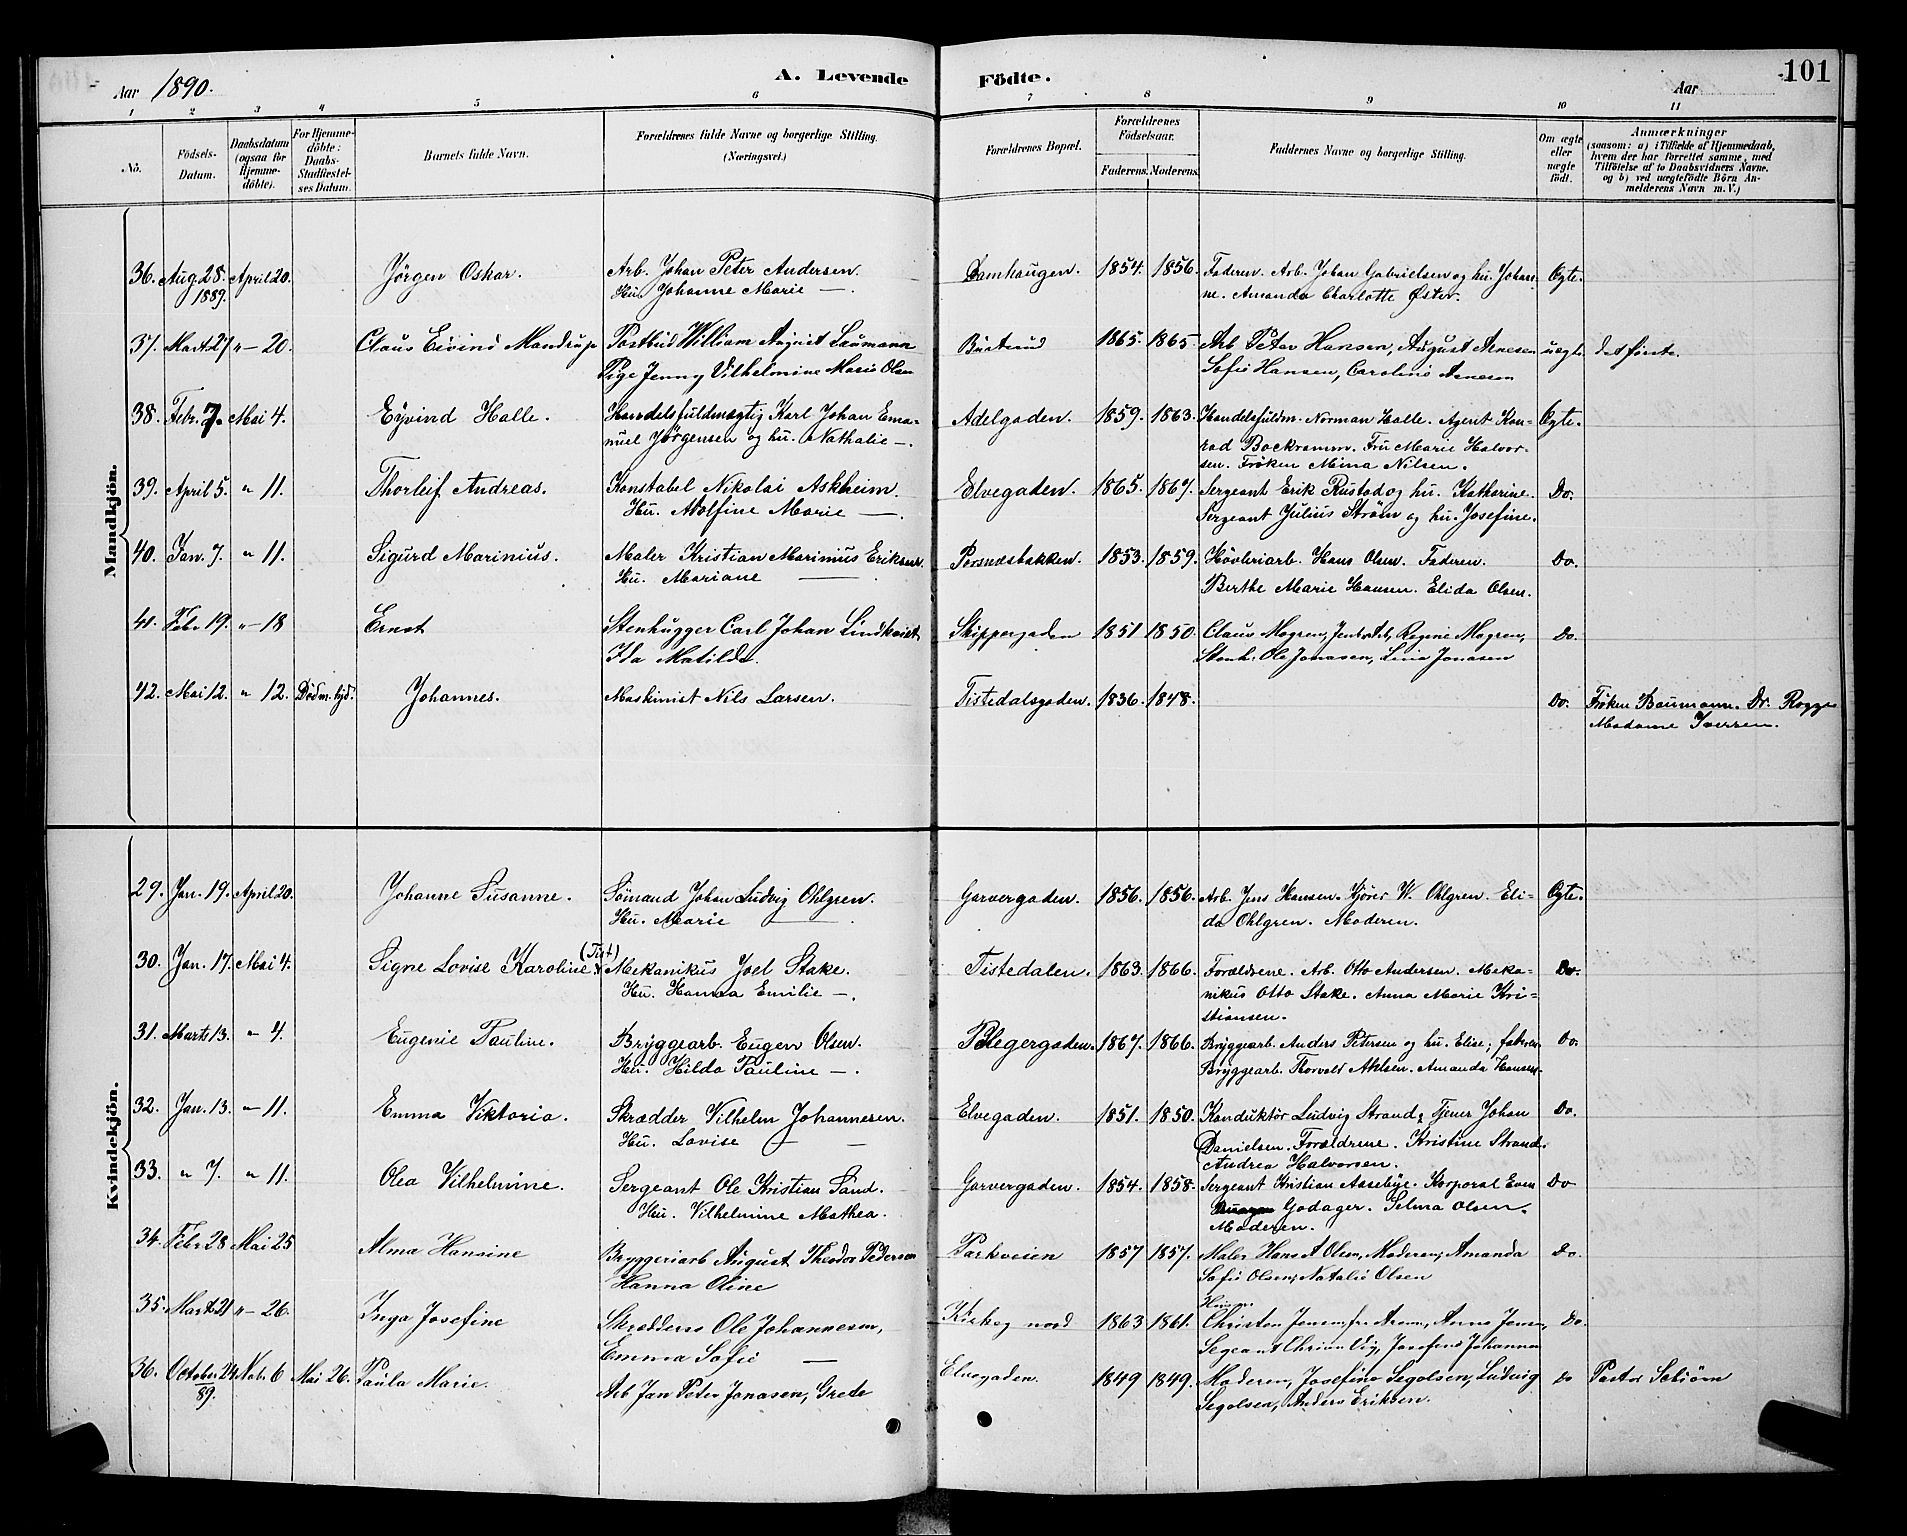 Aar 1890. A. Levende Födte. Aar 101
1 2 3 4 5 6 7 8 9 10 11
No. Födsels-Datum. Daabsdatum (ogsaa for Hjemme-döbte). For Hjemme-döbte: Daabs-Stadfæstel-ses Datum. Barnets fulde Navn. Forældrenes fulde Navne og borgerlige Stilling. (Næringsvei.) Forældrenes Bopæl. Forældrenes Födselsaar. Faderens. Moderens. Faddernes Navne og borgerlige Stilling. Om ægte eller uægte födt. Anmærkninger (saasom: a) i Tilfælde af Hjemmedaab, hvem der har forrettet samme, med Tilföielse af to Daabsvidners Navne, og b) ved uægtefödte Börn Anmelderens Navn m. V.)
Mandkjön.
36. Aug. 28. April 20. Jörgen Oskar. Arb. Johan Peter Andersen. Damhaugen. 1854. 1856. Faderen. Arb. Johan Gabrielsen og hu. Johan- Ægte.
1889. Hu. Johanne Marie —. ne. Amanda Charlotte Øster.
37. Marts 27 " — 20. Claus Eivind Mandrup Postbud William August Laumann Büstrud 1865. 1865 Arb Peter Hansen, August Arnesen uægte det förste.
Pige Jenny Vilhelmine Marie Olsen Sofie Hansen, Caroline Arnesen
38. Febr. 7. Mai 4. Eÿvind Halle. Handelsfuldmægtig Karl Johan Ema- Adelgaden. 1859. 1863. Handelsfuldm. Norman Halle. Agent Kon- Ægte.
nuel Jörgensen og hu. Nathalie —. rad Bockramm. Fru Marie Halvor-
sen. Fröken Mina Nilsen.
39. April 5. " 11. Thorleif Andreas. Konstabel Nikolai Askheim. Elvegaden. 1865. 1867. Sergeant Erik Rustad og hu. Katharine. Do.
Hu. Adolfine Marie —. Sergeant Julius Ström og hu. Josefine.
40. Jan. 7. " 11. Sigurd Marinius. Maler Kristian Marinius Eriksen. Porsnæsbakken. 1853. 1859. Hövleriarb. Hans Olsen. Faderen. Do.
Hu. Mariane — Berthe Marie Hansen. Elida Olsen.
41. Febr 19. " — 18 Ernst Stenhugger Carl Johan Lindkvist Skippergaden 1851. 1850. Claus Mogren, Regine Mogren, Do.
Ida Matilda. Stenh. Ole Jonasen, Lina Jonasen
42. Mai 12. " 12. Dödm. tyd. Johannes. Maskinist Nils Larsen. Tistedalsgaden. 1836. 1848. Do. Fröken Baumann. Dr. Rogge
Madame Iversen.
Kvindekjön.
29. Jan. 19. April 20. Johanne Susanne. Sömand Johan Ludvig Ohlgren. Garvergaden. 1856. 1856. Arb. Jens Hansen. Kjörer W. Ohlgren. Eli- Ægte.
Hu. Marie — da Ohlgren. Moderen.
30. Jan. 17. Mai 4. Signe Lovise Karoline (Tist) Mekanikus Joel Stake. Tistedalen. 1863. 1866. Forældrene. Arb. Otto Andersen. Meka- Do.
Hu. Hanna Emilie —. nikus Otto Stake. Anna Marie Kri-
stiansen.
31. Marts 13. " 4. Eugenie Pauline. Bryggearb. Eugen Olsen. Pelegergaden. 1867. 1866. Bryggearb. Anders Petersen og hu. Elise; faderen Do.
Hu. Hilda Pauline —. Bryggearb. Thorvald Ahlsen. Amanda Hansen.
32. Jan. 13. " 11. Emma Viktoria. Skrædder Vilhelm Johannesen. Elvegaden. 1851. 1850. Konduktör Ludvig Strand, Tjener Johan Do.
Hu. Lovise — Danielsen. Forældrene. Kristine Strand.
Andrea Halvorsen.
33. " 7. " 11. Olea Vilhelmine. Sergeant Ole Kristian Sand. Garvergaden. 1854. 1858. Sergeant Kristian Aasebye. Korporal Even Do
Hu. Vilhelmine Mathea. Godager. Selma Olsen.
Moderen.
34. Febr 28 Mai 25 Alma Hansine Bryggeriarb August Theodor Pedersen Parkveien 1857 1857. Maler Hans A Olsen, Moderen, Amanda Do.
Hanna Oline Sofie Olsen, Natalie Olsen
35. Marts 21 " — 26. Inga Josefine Skrædders Ole Johannesen, Kirkeg nord 1863 1861. Christen Jensen, Anna Jensen, Do.
Emma Sofie — Josefine Johannes
36. October 24 Novb. 6 Mai 26. Paula Marie. Arb Jan Peter Jonasen, Grete Elvegaden. 1849 1849. Moderen, Josefine Segolsen, Ludvig Do Pastor Schiörn
89. Segolsen, Anders Eriksen.